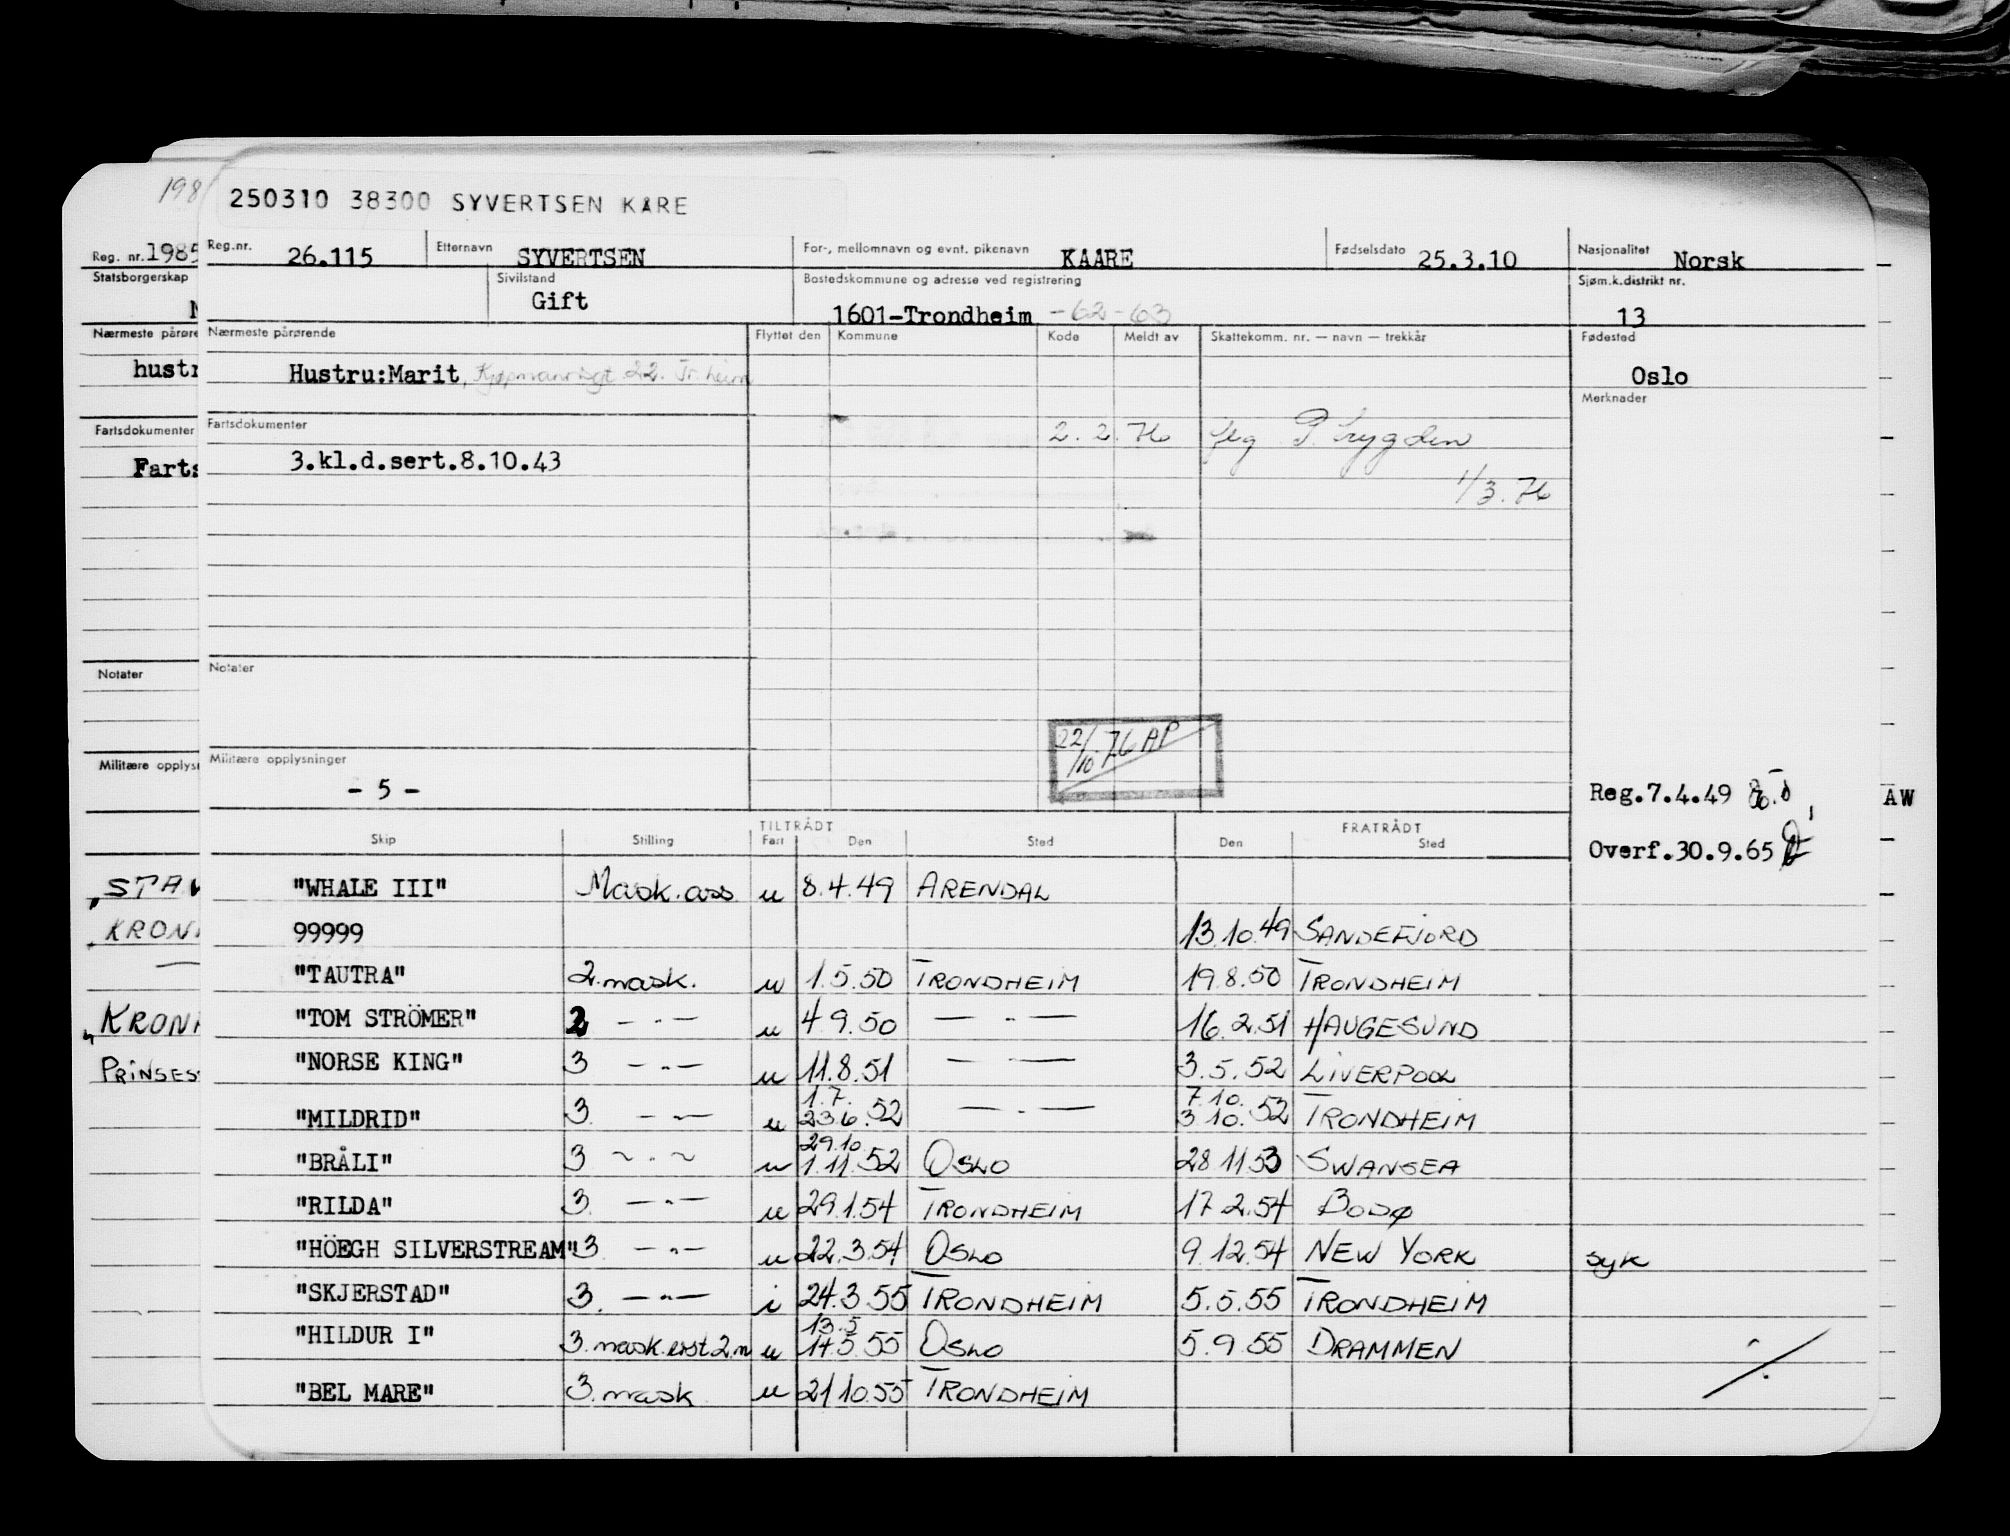 198
250310 38300 SYVERTSEN KÅRE
Reg. nr. 1985
Statsborgerskap
N
Nærmeste pårøre
hustr
Fartsdokumenter
Farts
Notater
Militære opplysn
"STAV
"KRONP
"KRONP
PRINSES
Reg.nr. 26.115 Etternavn SYVERTSEN For-, mellomnavn og evnt. pikenavn KAARE Fødselsdato 25.3.10 Nasjonalitet Norsk
Sivilstand Gift Bostedskommune og adresse ved registrering 1601-Trondheim -62-63 Sjøm.k.distrikt nr. 13
Nærmeste pårørende Flyttet den Kommune Kode Meldt av Skattekomm. nr. — navn — trekkår Fødested
Hustru:Marit, Kjøpmannsgt 22. Tr.heim Oslo
Merknader
Fartsdokumenter 2.2.76
3.kl.d.sert.8.10.43
1/3.76
Notater
22/10 76 AP
Militære opplysninger
- 5 -
Reg.7.4.49
AW
Overf.30.9.65
TILTRÅDT FRATRÅDT
Skip Stilling Fart Den Sted Den Sted
"WHALE III" Mask.ass u 8.4.49 ARENDAL
99999 13.10.49 SANDEFJORD
"TAUTRA" 2.mask. u 1.5.50 TRONDHEIM 19.8.50 TRONDHEIM
"TOM STRÖMER" 2 — „ — u 4.9.50 — „ — 16.2.51 HAUGESUND
"NORSE KING" 3 — „ — u 11.8.51 — „ — 3.5.52 LIVERPOOL
1.7. 7.10.
"MILDRID" 3 — „ — u 23.6.52 — „ — 3.10.52 TRONDHEIM
29.10
"BRÅLI" 3 — „ — u 1.11.52 OSLO 28.11.53 SWANSEA
"RILDA" 3 — „ — u 29.1.54 TRONDHEIM 17.2.54 BODØ
"HÖEGH SILVERSTREAM" 3 — „ — u 22.3.54 OSLO 9.12.54 NEW YORK syk
"SKJERSTAD" 3. — „ — i 24.3.55 TRONDHEIM 5.5.55 TRONDHEIM
13.5
"HILDUR I" 3.mask.erst.2.m u 14.5.55 OSLO 5.9.55 DRAMMEN
"BEL MARE" 3.mask u 21.10.55 TRONDHEIM